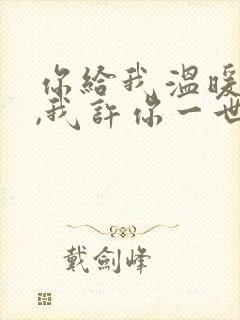 你給我溫暖
,我許你一世
戴劍峰